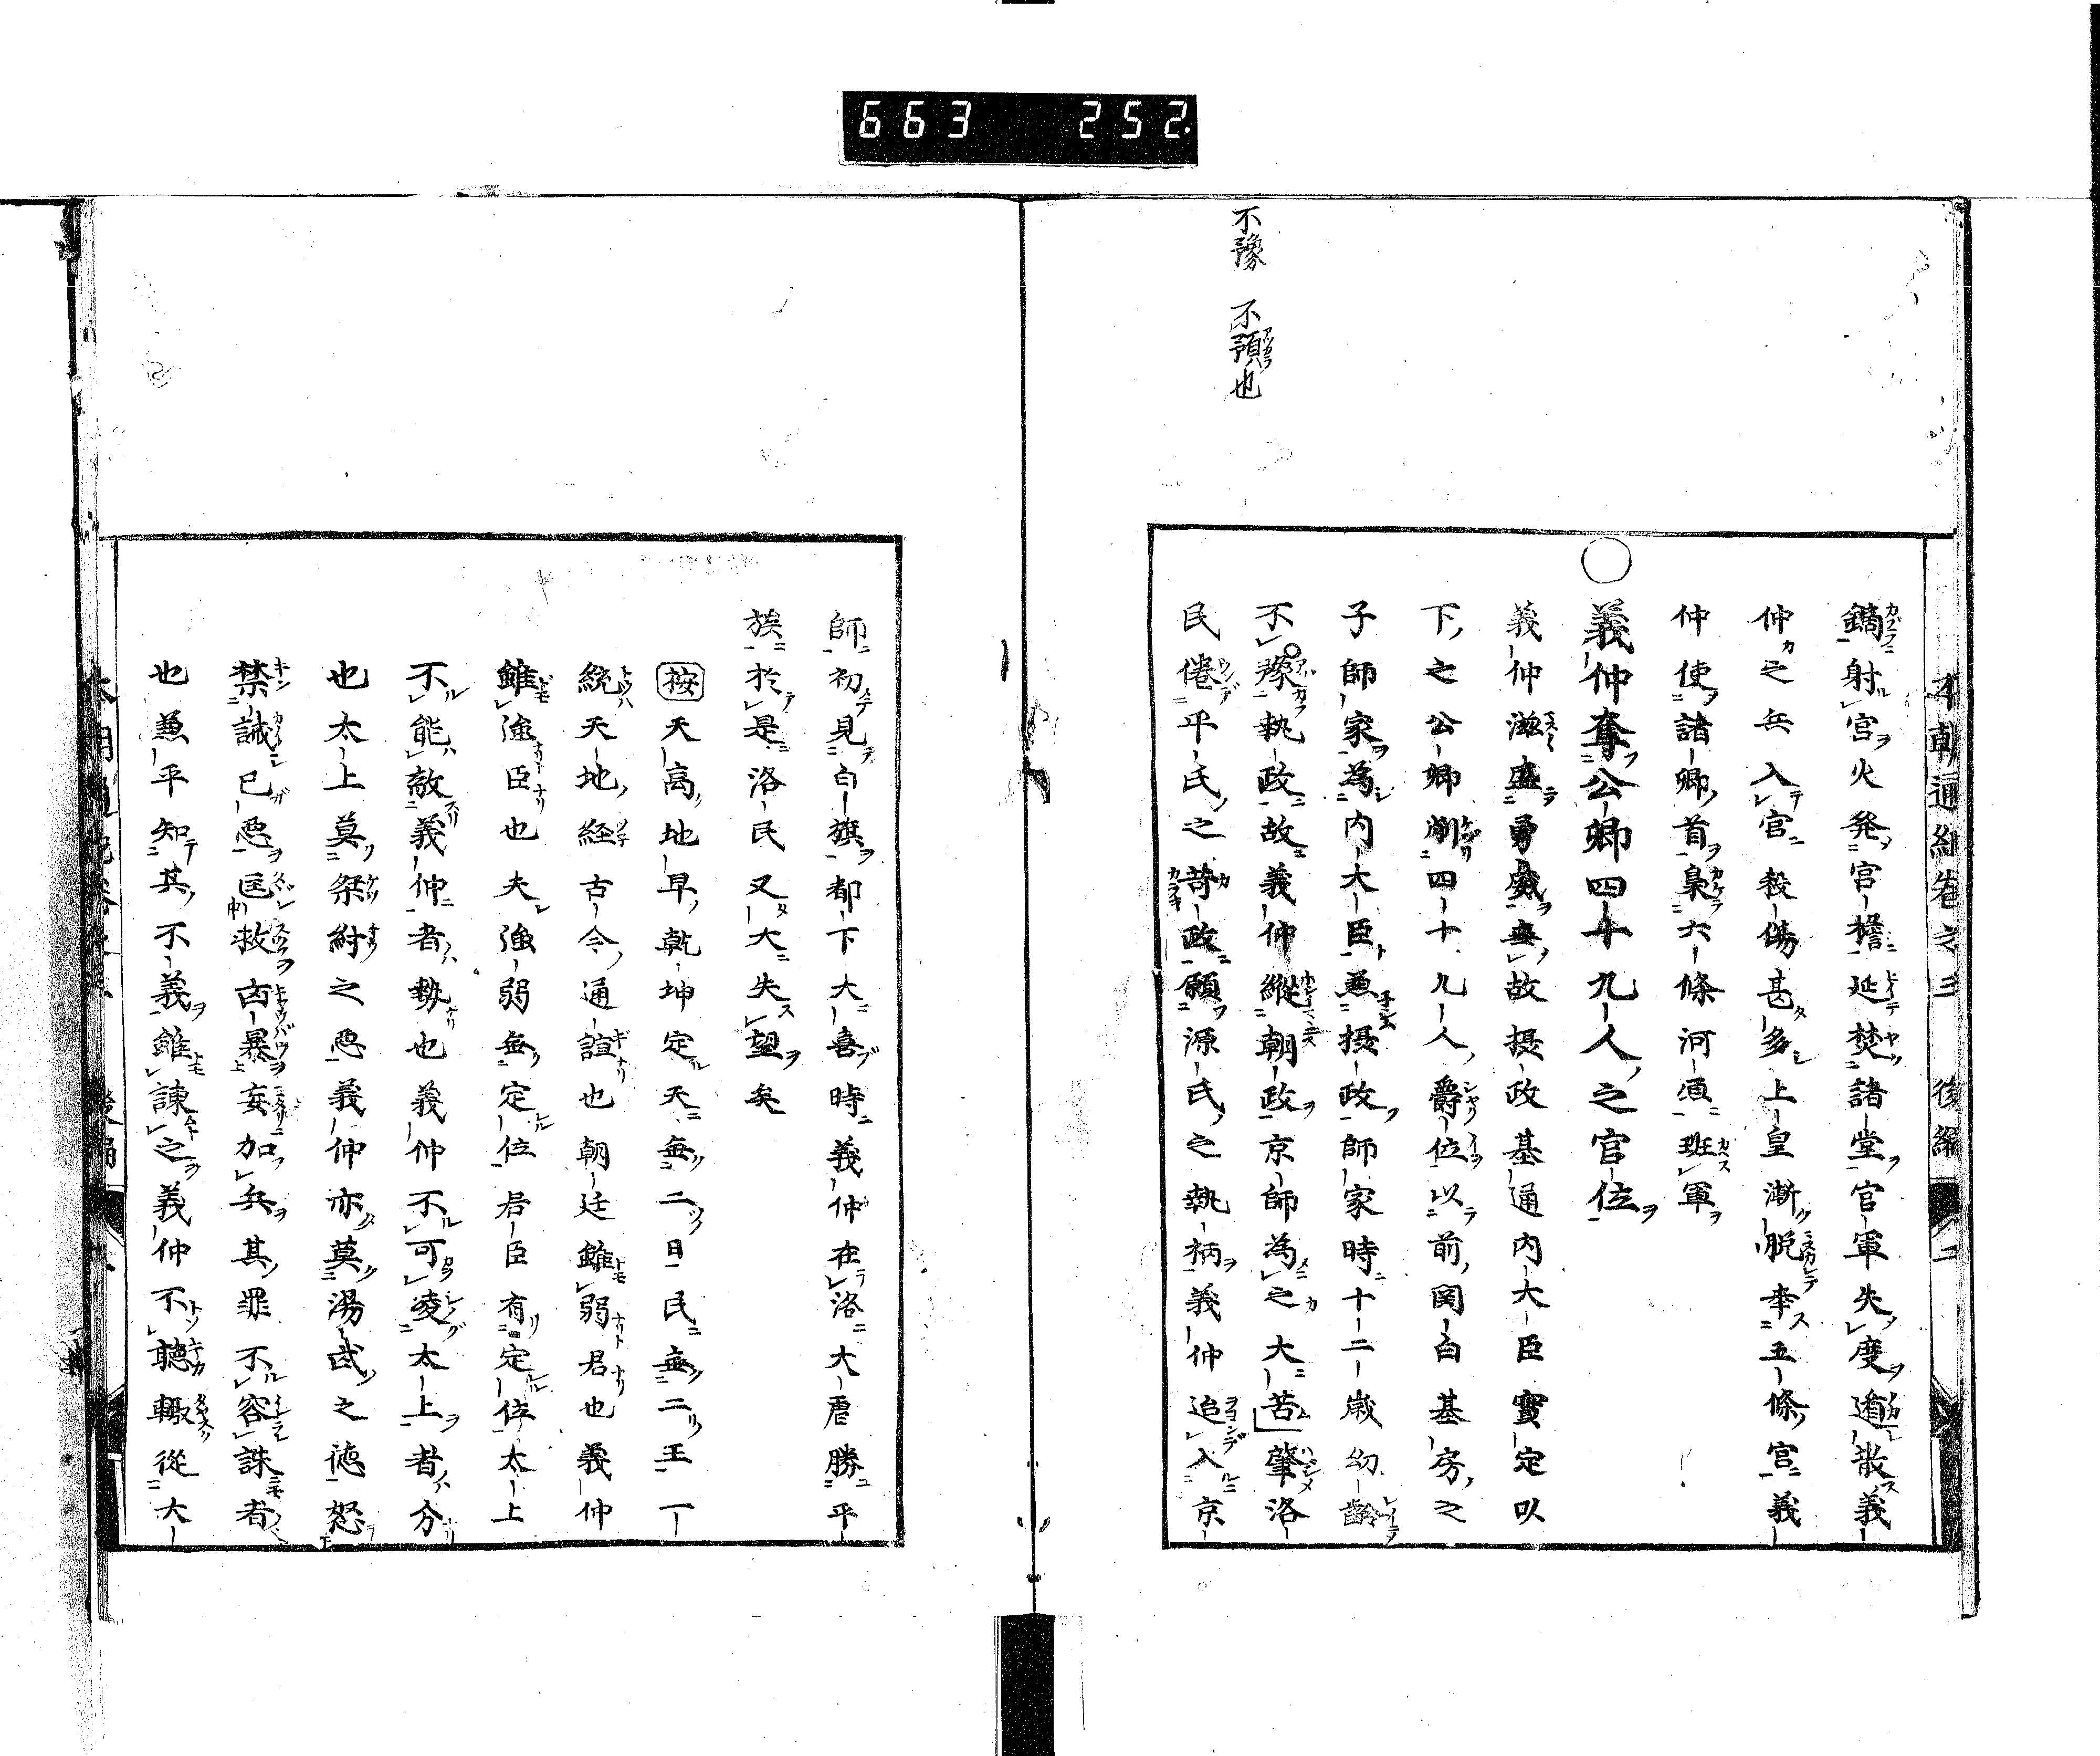 663 252
不豫 不預也
本朝通紀卷之三 後編 二
鏑射宮火発宮檐延焚諸堂官軍失度遁散義
仲之兵入宮殺傷甚多上皇漸脱幸五條宮義
仲使諸卿首梟六條河原班軍
○義仲奪公卿四十九人之官位
義仲滋盛勇威無故摂政基通内大臣實定以
下之公卿削四十九人爵位以前関白基房之
子師家為内大臣兼摂政師家時十二歳幼齢
不豫執政故義仲縦朝政京師為之大苦肇洛
民倦平氏之苛政願源氏之執柄義仲迨入京
師初見白旗都下大喜時義仲在洛大虐勝平
族於是洛民又大失望矣
按天高地早乾坤定天無二日民無二王一
統天地経古今通誼也朝廷雖弱君也義仲
雖強臣也夫強弱無定位君臣有定位太上
不能敵義仲者勢也義仲不可凌太上者分
也太上莫桀紂之悪義仲亦莫湯武之徳怒
禁誡已悪匡救凶暴妄加兵其罪不容誅者
也兼平知其不義雖諌之義仲不聴輙從大